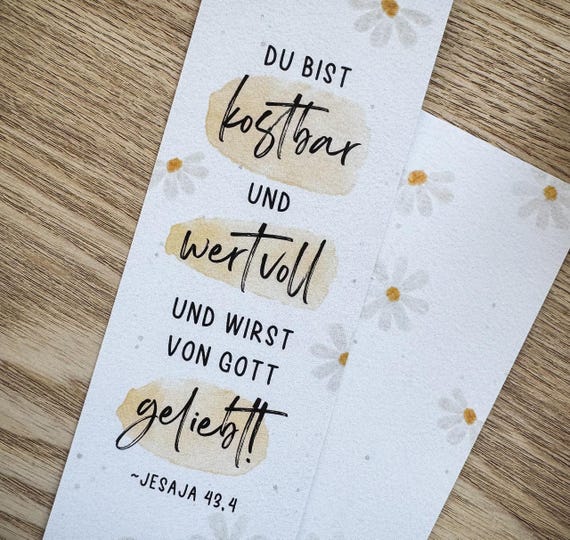 DU BIST
kostbar
UND
wertvoll
UND WIRST
VON GOTT
geliebt!
~JESAJA 43,4